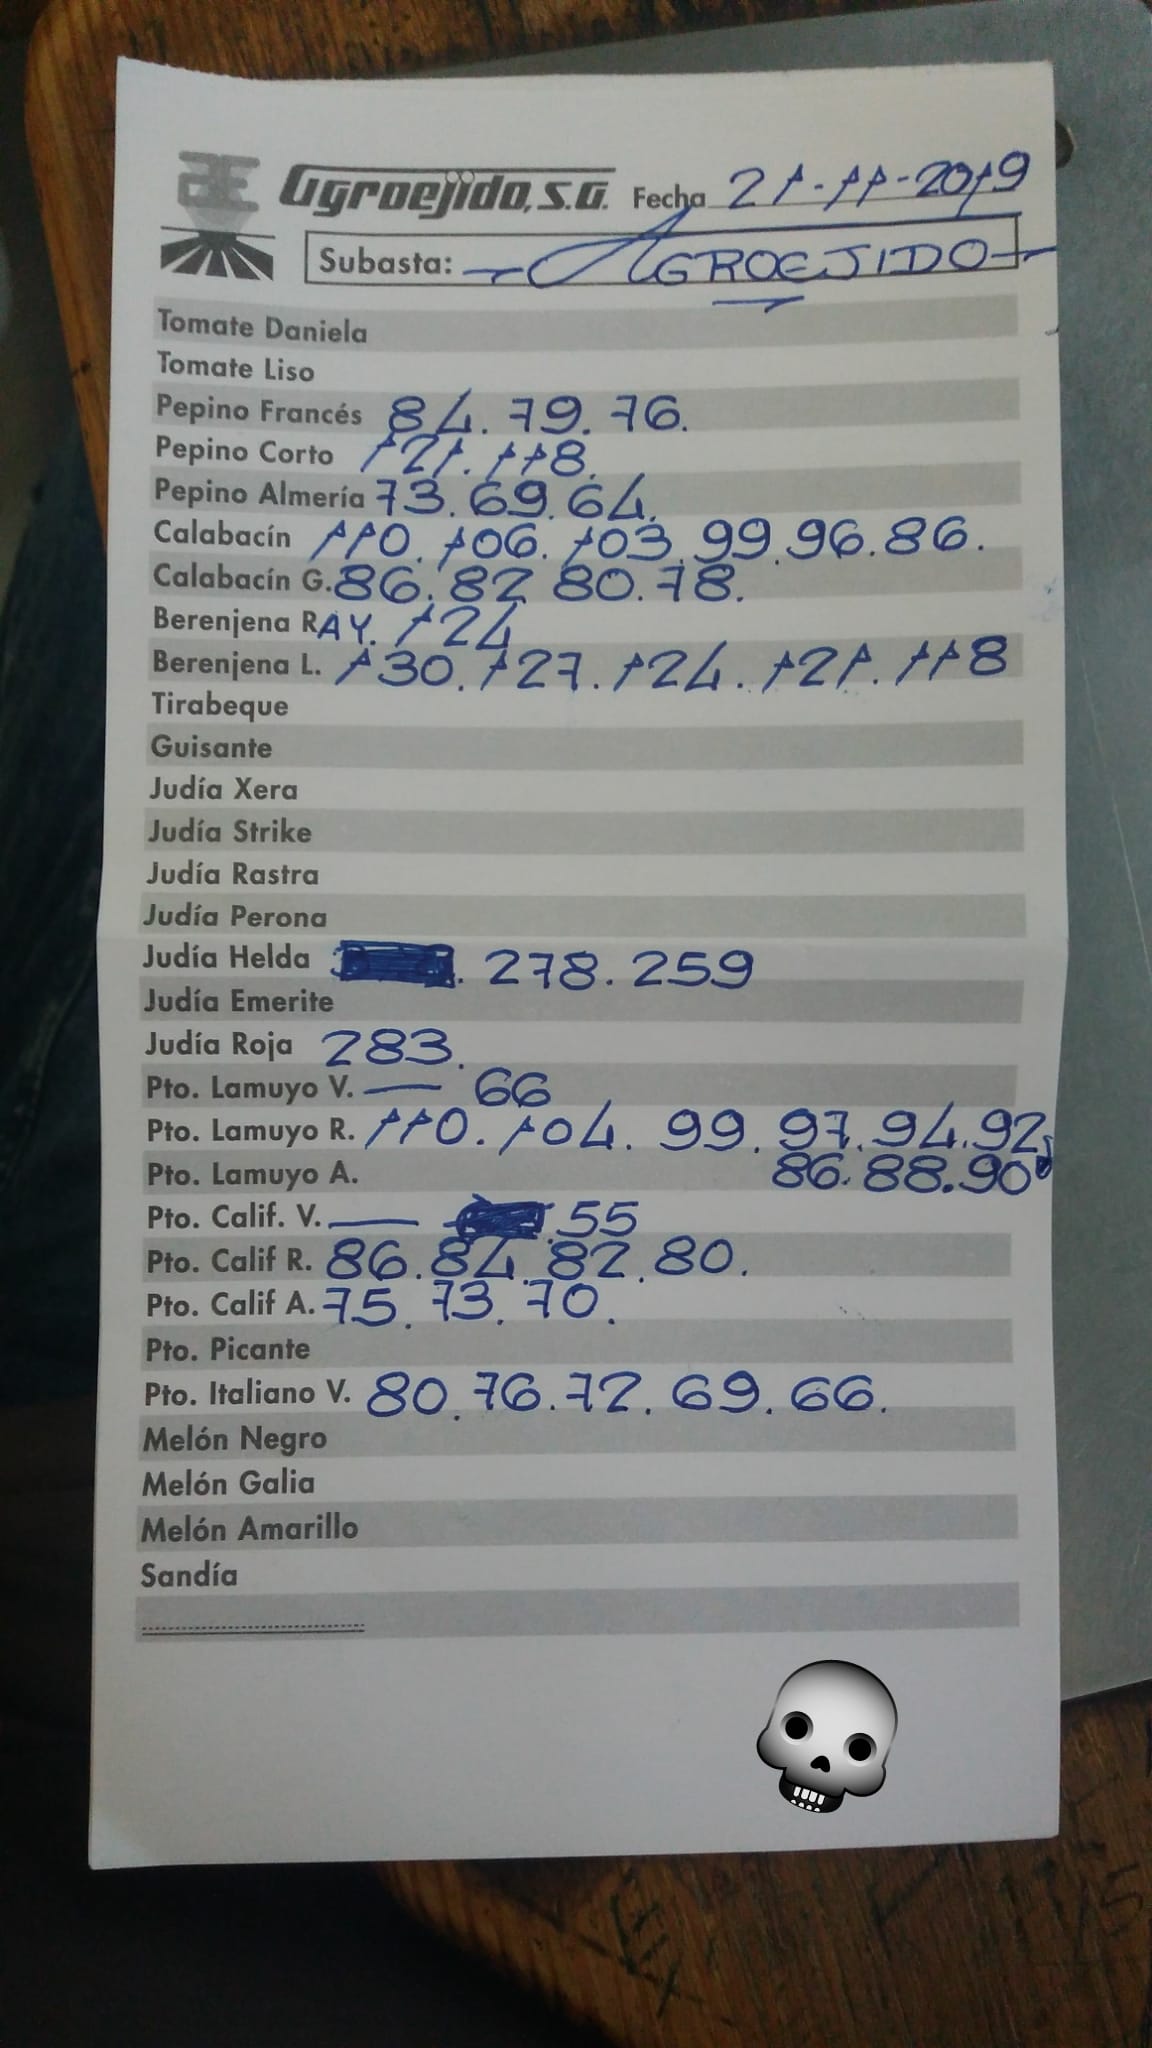 Agroejido, S.A. Fecha 21-11-2019
Subasta: AGROEJIDO
Tomate Daniela
Tomate Liso
Pepino Francés 84. 79. 76.
Pepino Corto 121. 118.
Pepino Almería 73. 69. 64.
Calabacín 110. 106. 103. 99. 96. 86.
Calabacín G. 86. 82 80. 78.
Berenjena RAY. 124
Berenjena L. 130. 127. 124. 121. 118
Tirabeque
Guisante
Judía Xera
Judía Strike
Judía Rastra
Judía Perona
Judía Helda . 278. 259
Judía Emerite
Judía Roja 283.
Pto. Lamuyo V. — 66
Pto. Lamuyo R. 110. 104. 99. 97. 94. 92
Pto. Lamuyo A. 86. 88. 90
Pto. Calif. V. — . 55
Pto. Calif R. 86. 84. 82. 80.
Pto. Calif A. 75. 73. 70.
Pto. Picante
Pto. Italiano V. 80. 76. 72. 69. 66.
Melón Negro
Melón Galia
Melón Amarillo
Sandía